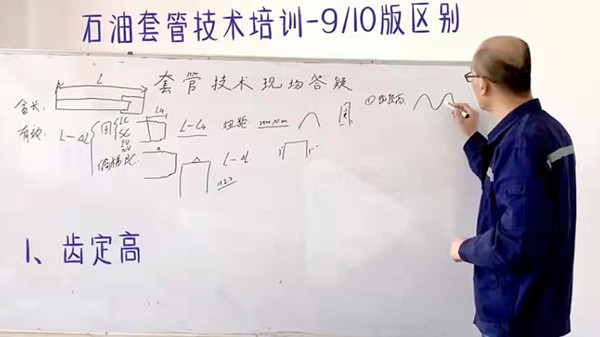 石油套管技术培训-9/10版区别
套管技术现场答疑
L
全长:
有效: L-ΔL
圆
LC
SC
偏梯BC
L4
L-L4 扭矩
L-ΔL
①
1、齿定高